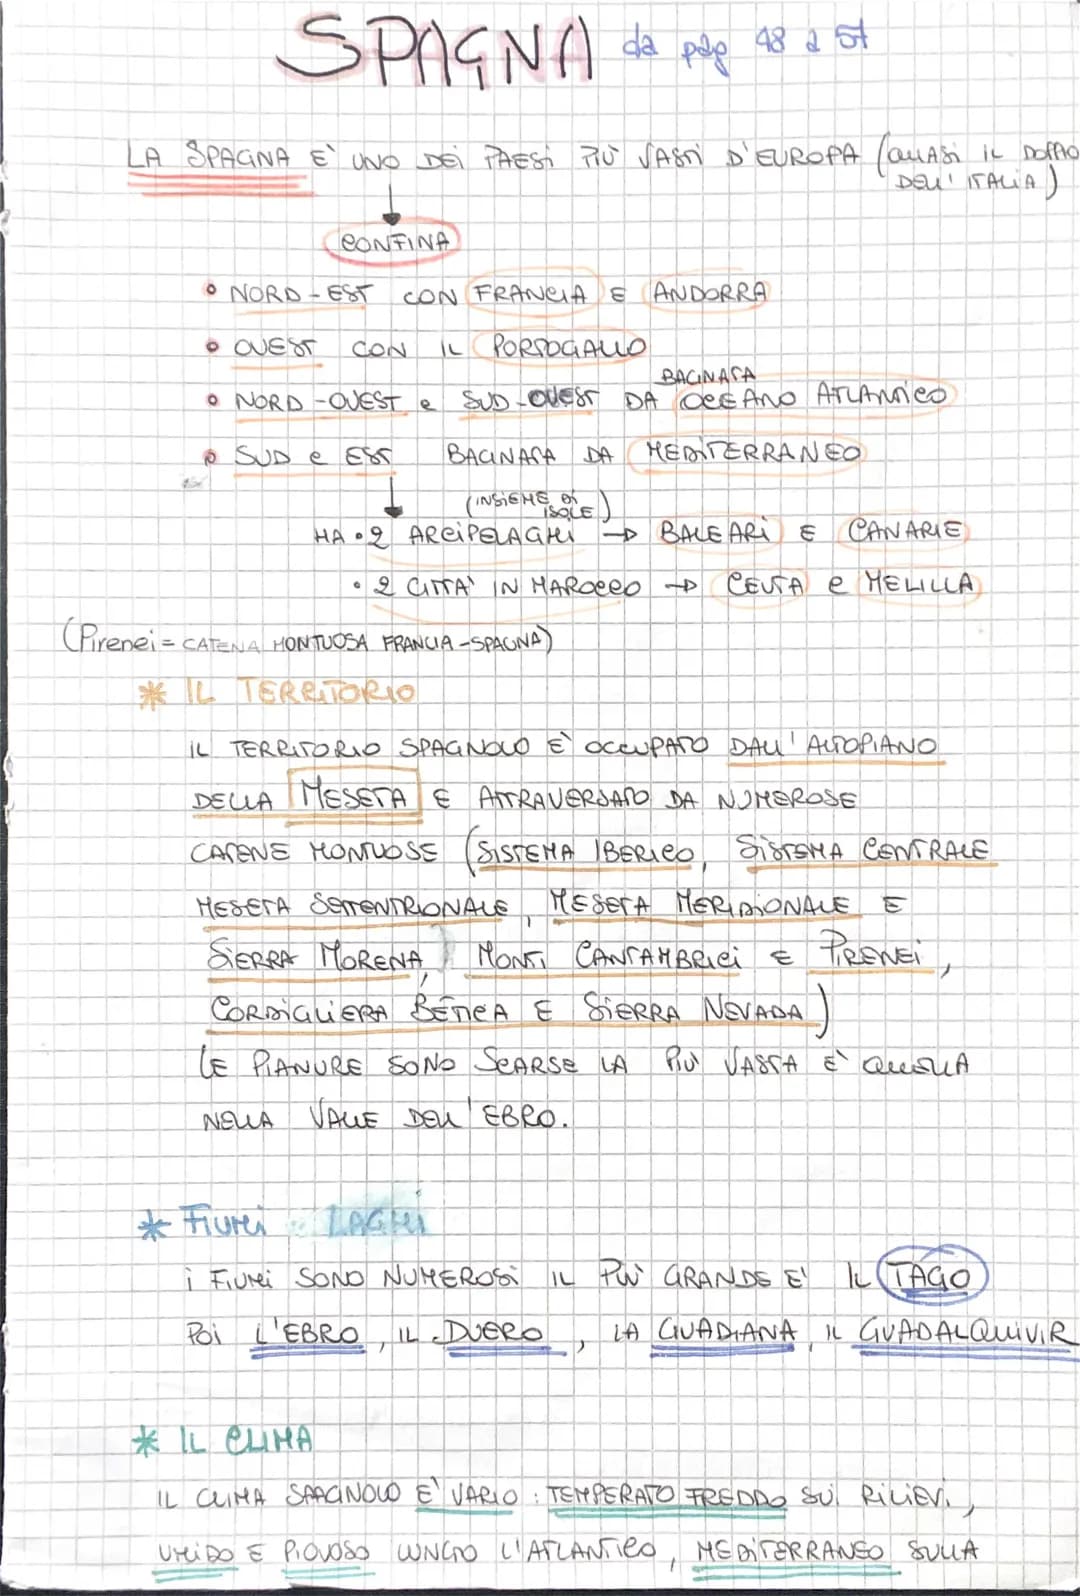 SPAGNA da pag 48 a 57
LA SPAGNA E' UNO DEI PAESI PIÙ VASTI D'EUROPA (QUASI IL DOPPIO
DELL'ITALIA)
CONFINA
• NORD-EST CON FRANCIA E ANDORRA
• OVEST CON IL PORTOGALLO
BAGNATA
• NORD-OVEST e SUD-OVEST DA OCEANO ATLANTICO
• SUD e EST BAGNATA DA MEDITERRANEO
(INSIEME DI
ISOLE)
HA • 2 ARCIPELAGHI → BALEARI E CANARIE
• 2 CITTA' IN MAROCCO → CEUTA e MELILLA
(Pirenei = CATENA MONTUOSA FRANCIA-SPAGNA)
* IL TERRITORIO
IL TERRITORIO SPAGNOLO E' OCCUPATO DALL'ALTOPIANO
DELLA MESETA E ATTRAVERSATO DA NUMEROSE
CATENE MONTUOSE (SISTEMA IBERICO, SISTEMA CENTRALE
MESETA SETTENTRIONALE, MESETA MERIDIONALE E
SIERRA MORENA, MONTI CANTAMBRICI E PIRENEI,
CORDIGLIERA BETICA E SIERRA NEVADA)
LE PIANURE SONO SCARSE LA PIU' VASTA E' QUELLA
NELLA VALLE DELL'EBRO.
* FIUMI LAGHI
I FIUMI SONO NUMEROSI IL PIU' GRANDE E' IL TAGO
POI L'EBRO, IL DUERO, LA GUADIANA, IL GUADALQUIVIR
* IL CLIMA
IL CLIMA SPAGNOLO E' VARIO: TEMPERATO FREDDO SUI RILIEVI,
UMIDO E PIOVOSO LUNGO L'ATLANTICO, MEDITERRANEO SULLA